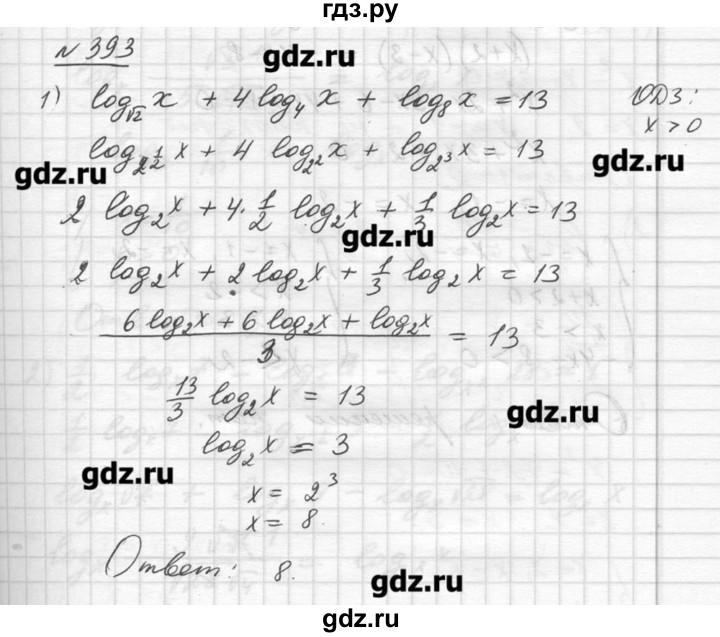 гдз.ру
№ 393
gdz.ru
1) log_{√2} x + 4 log_4 x + log_8 x = 13
ОДЗ:
x > 0
log_{2^{1/2}} x + 4 log_{2^2} x + log_{2^3} x = 13
gdz.ru
gdz.ru
2 log_2 x + 4 · 1/2 log_2 x + 1/3 log_2 x = 13
gdz.ru
2 log_2 x + 2 log_2 x + 1/3 log_2 x = 13
(6 log_2 x + 6 log_2 x + log_2 x)/3 = 13
13/3 log_2 x = 13
gdz.ru
log_2 x = 3
gdz.ru
x = 2^3
x = 8.
Ответ: 8.
gdz.ru
gdz.ru